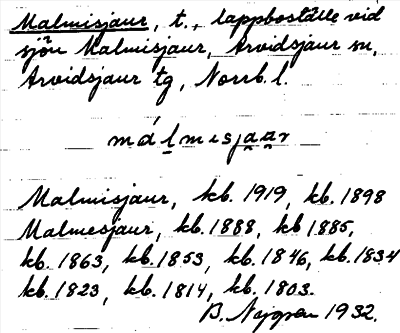 Malmisjaur, t., lappboställe vid
sjön Malmisjaur, Arvidsjaur sn,
Arvidsjaur tg, Norrb. l.
málmɩsja̮a̮r
Malmisjaur, kb. 1919, kb. 1898
Malmesjaur, kb. 1888, kb 1885,
kb. 1863, kb. 1853, kb. 1846, kb. 1834
kb. 1823, kb. 1814, kb. 1803.
B. Nygren 1932.